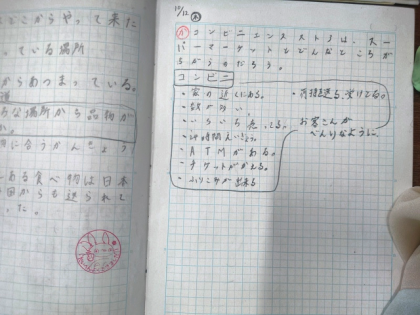 とどこからやって来た
ている場所
がらあつまっている。
ろな場所から品物が
ある食べ物は日本
国からも送られて
た。
10/12 木
コンビニエンスストアは、スー
パーマーケットとどんなところが
ちがうのだろう。
コンビニ
・家の近くにある。
・数が多い。
・いろいろ売ってる。
・24時間えいぎょう
・ATMがある。
・チケットがかえる。
・ふりこみが出来る
・荷物を送る、受けとる。
お客さんが
べんりなように